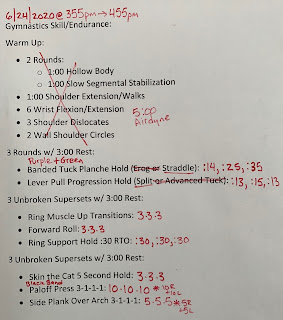 6/24/2020 @ 355pm → 455pm
Gymnastics Skill/Endurance:
Warm Up:
• 2 Rounds:
o 1:00 Hollow Body
o 1:00 Slow Segmental Stabilization
• 1:00 Shoulder Extension/Walks
• 6 Wrist Flexion/Extension 5:00
• 3 Shoulder Dislocates Airdyne
• 2 Wall Shoulder Circles
3 Rounds w/ 3:00 Rest:
Purple + Green
• Banded Tuck Planche Hold (Frog or Straddle): :14, :25, :35
• Lever Pull Progression Hold (Split or Advanced Tuck): :13, :15, :13
3 Unbroken Supersets w/ 3:00 Rest:
• Ring Muscle Up Transitions: 3-3-3
• Forward Roll: 3-3-3
• Ring Support Hold :30 RTO: :30, :30, :30
3 Unbroken Supersets w/ 3:00 Rest:
• Skin the Cat 5 Second Hold: 3-3-3
Black Band
• Paloff Press 3-1-1-1: 10-10-10 * 10R
+10L
• Side Plank Over Arch 3-1-1-1: 5-5-5 * 5R
+5L